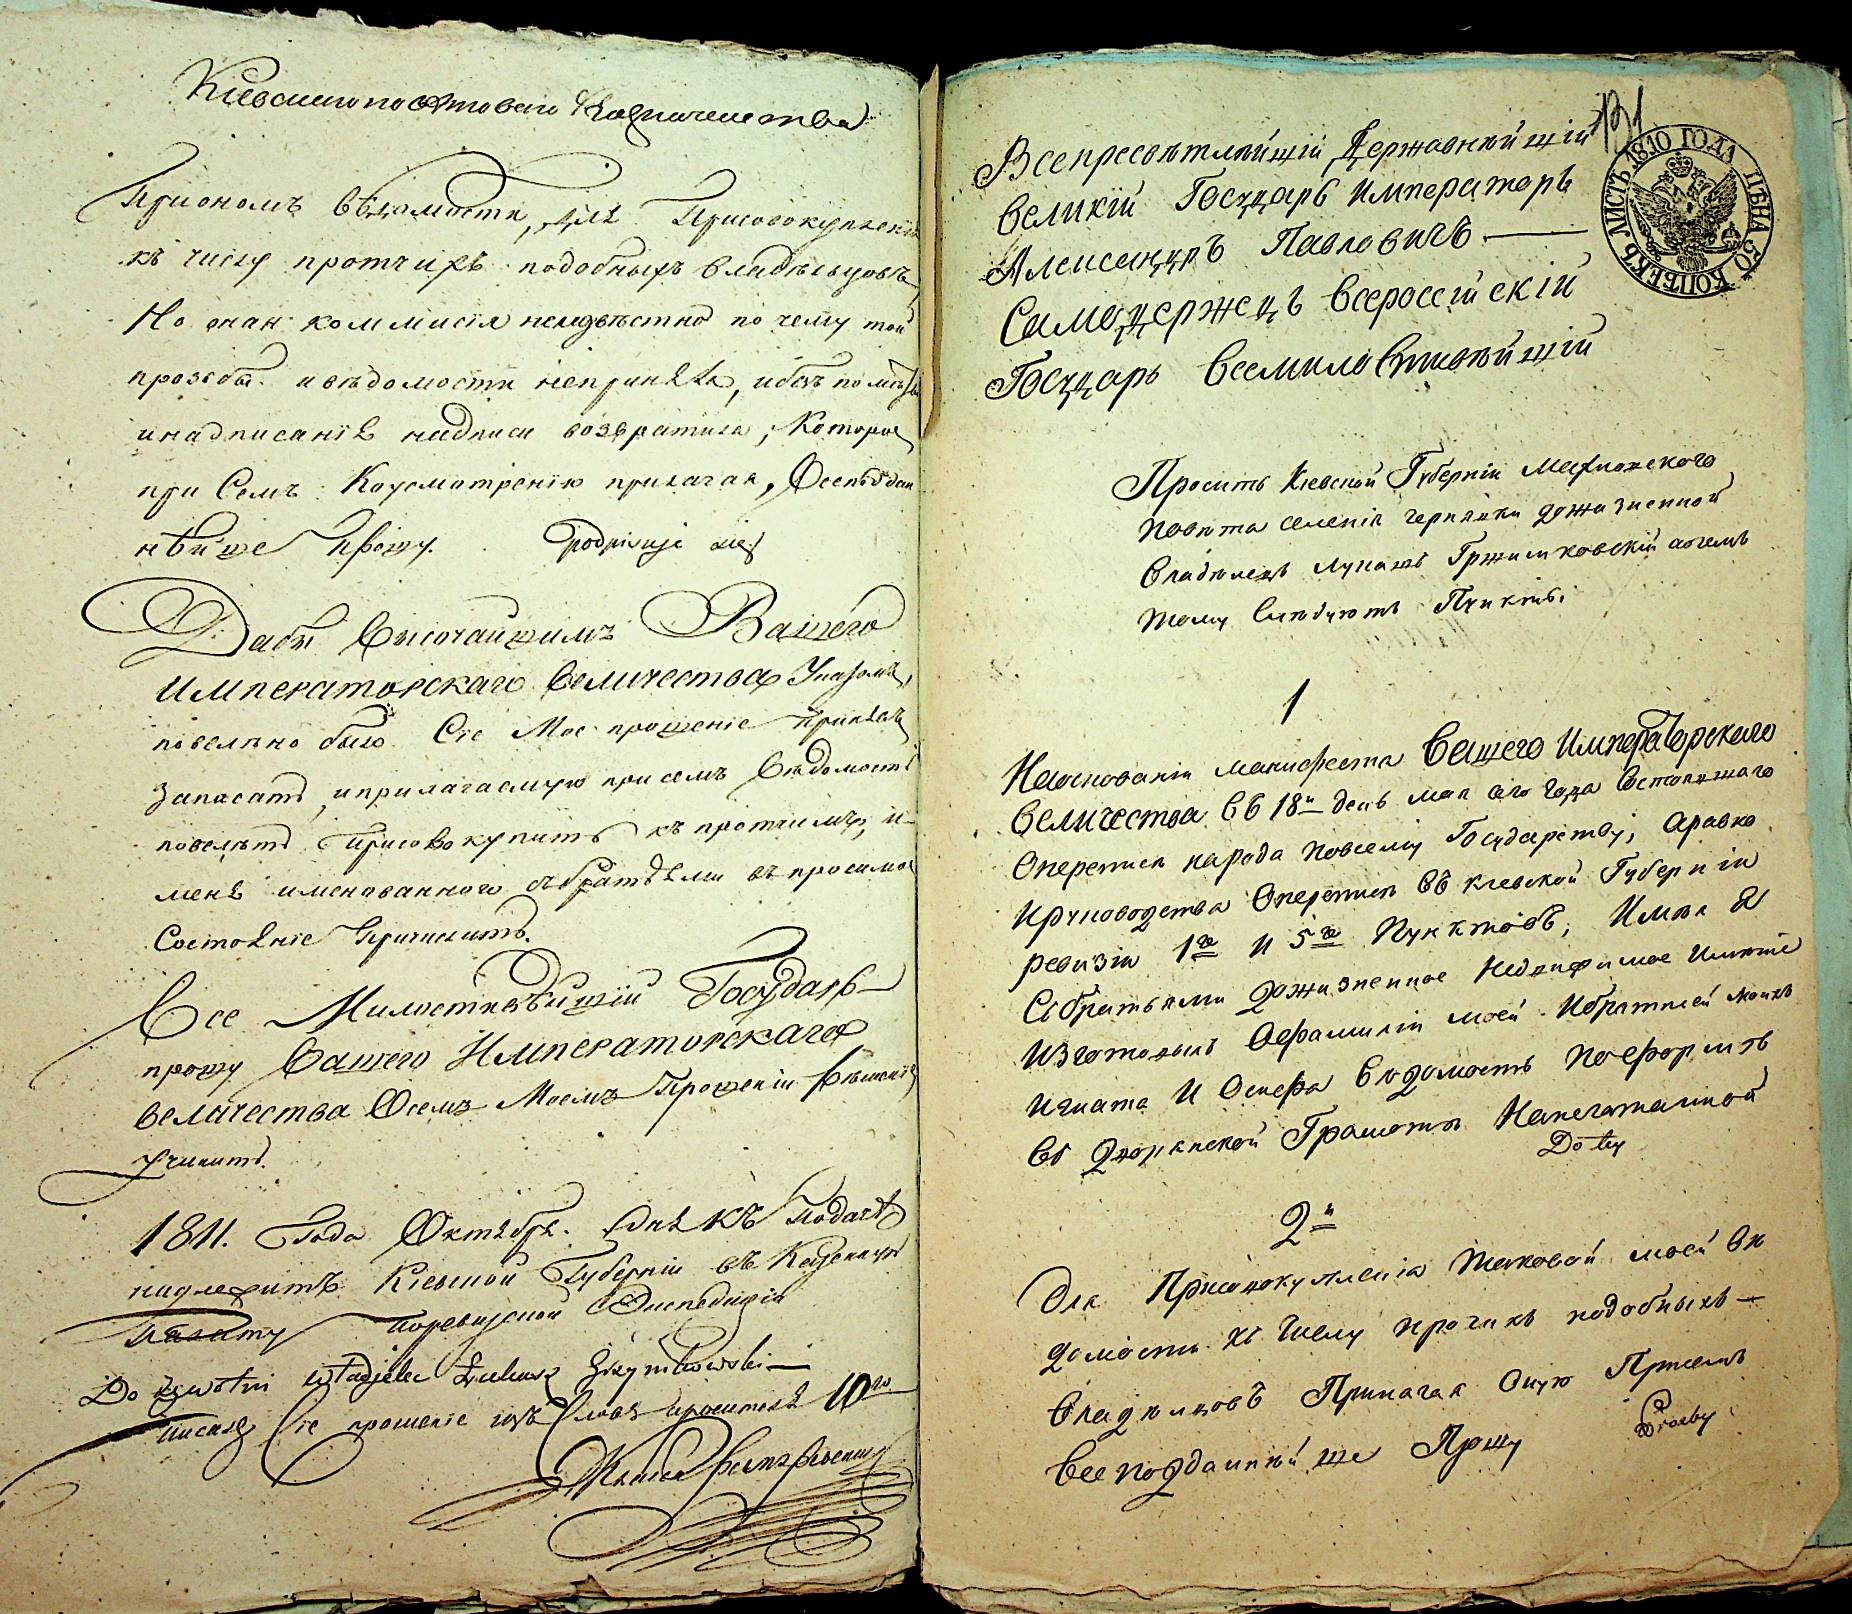 Киевского поветового Казначейства
При оном ведомости, для Присовокупления
къ числу протчихъ подобныхъ владѣльцовъ
Но оная коммисія неизвѣстно по чему той
прозбы и вѣдомости неприняла, и безъ
инадписаніе надписи возвратила, Которые
при Семъ Коусмотренію прилагая, Всеподдан
нѣйше Прошу. Podpisuje się
Дабы Высочайшимъ Вашего
Императорскаго Величества Указомъ,
повелѣно было Сіе Мое прошеніе принявъ
записать, иприлагаемую присемъ Вѣдомость
повелѣть Присовокупить къ протчимъ, и
меня именованного събратьями въ просимое
Состояніе Причислить.
Все Милостивѣйшій Государь
прошу Вашего Императорскаго
величества Осемъ Моемъ Прошеніи рѣшеніе
учинить.
1811. Года Октября. Дня Къ Подачѣ
надлежитъ Кіевской Губерніи въ Казенную
Палату поревизской Экспедиціи
Do żywotni władziele Łukasz Grzymkowski
писалъ Сіе прошеніе изъ Словъ просителя 10го
131
Всепресвѣтлѣйшій Державнѣйшій
Великій Государь Императоръ
Александръ Павловичъ
Самодержецъ Всероссійскій
Государь Всемилостивѣйшій
ЛИСТЪ 1810 ГОДА ЦѢНА 50 КОПѢЕКЪ
Проситъ Киевской Губерніи Махновского
Повѣта селенія Чернявки дожизненной
Владѣлецъ Лукашъ Гржимковскій аочемъ
тому Слѣдуютъ Пункты.
1
Наоснованіи манифеста Вашего Императорского
Величества въ 18й день мая сего года Состоявшаго
Опереписи народа повсему Государству, аравно
Ируководства Опереписи въ Киевской Губерніи
ревизіи 1го и 5го Пунктовъ, Имѣя Я
Собратьями дожизненное Недвижимое Имѣніе
Изготовилъ Офамиліи моей Ибратьей моихъ
Игната И Осифа Вѣдомость Поформѣ
Въ Дворянской Грамотѣ Напечатанной
Do tey
2й
Для Присовокупленія таковой моей вѣ
домости къ Числу прочихъ подобныхъ
Владѣльцовъ Прилагая Оную Присемъ
Всеподданнѣйше Прошу Prozby